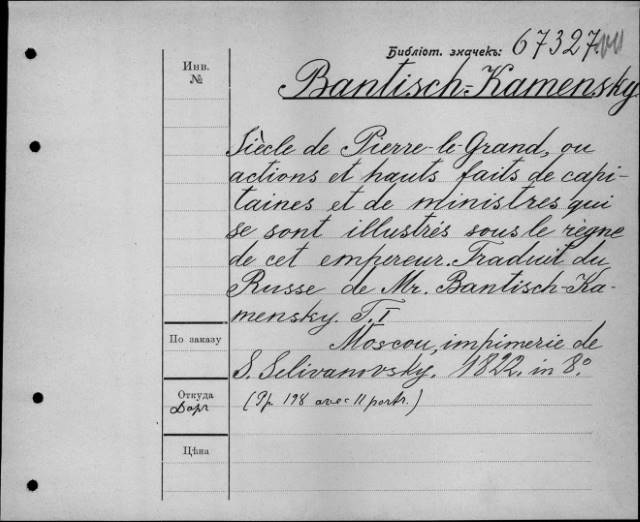 Библіот. значекъ: 67327
Инв.
№
Bantisch-Kamensky
Siècle de Pierre-le-Grand, ou
actions et hauts faits de capi-
taines et de ministres qui
se sont illustrés sous le règne
de cet empereur. Traduit du
Russe de Mr. Bantisch-Ka-
mensky. T. I
По заказу
Moscou, impimerie de
S. Selivanovsky. 1822. in 8.°
Откуда
Даръ
(Pp. 198 avec 11 portr.)
Цѣна